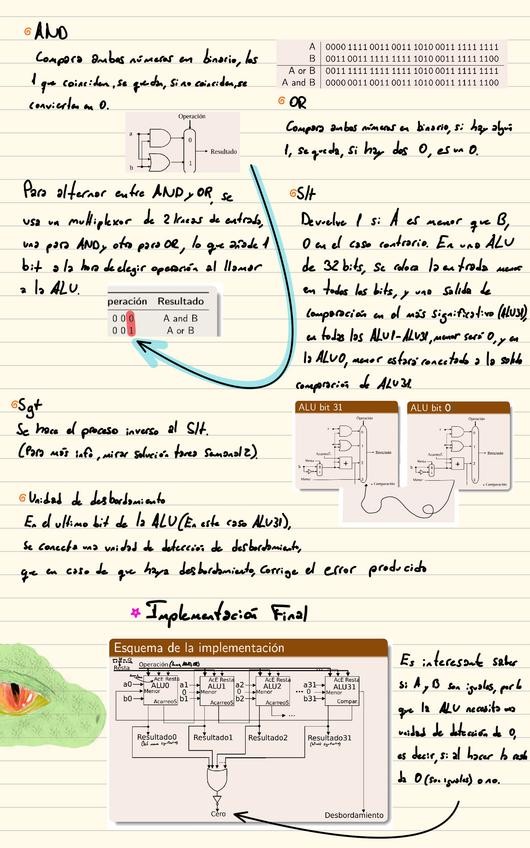 AND
Compara ambos números en binario, los
1 que coinciden, se quedan, si no coinciden, se
convierten en 0.
Operación
a
b
0
1
Resultado
A 0000 1111 0011 0011 1010 0011 1111 1111
B 0011 1111 0011 0011 1010 0011 1111 1100
A or B 0011 1111 0011 0011 1010 0011 1111 1111
A and B 0000 1111 0011 0011 1010 0011 1111 1100
OR
Compara ambos números en binario, si hay algún
1, se queda, si hay dos 0, es un 0.
Para alternar entre AND y OR, se
usa un multiplexor de 2 líneas de entrada,
una para AND y otra para OR, lo que añade 1
bit a la hora de elegir operación al llamar
a la ALU.
peración Resultado
0 0 0 A and B
0 0 1 A or B
Slt
Devuelve 1 si A es menor que B,
0 en el caso contrario. En una ALU
de 32 bits, se coloca la entrada menor
en todos los bits, y una salida de
comparación en el más significativo (ALU31),
en todas las ALU1-ALU31, menor será 0, y en
la ALU0, menor estará conectado a la salida
comparación de ALU31
Sgt
Se hace el proceso inverso al Slt.
(Para más info, mirar solución tarea Semanal 2).
ALU bit 31
Operación
Resultado
Comparación
ALU bit 0
Operación
Resultado
Comparación
Unidad de desbordamiento
En el ultimo bit de la ALU (En este caso ALU31),
se conecta una unidad de detección de desbordamiento,
que en caso de que haya desbordamiento, corrige el error producido
Implementación Final
Esquema de la implementación
Resta Operación
AcE Resta AcE Resta AcE Resta AcE Resta
a0 ALU0 a1 ALU1 a2 ALU2 a31 ALU31
Menor 0 Menor 0 Menor 0 Menor
b0 AcarreoS b1 AcarreoS b2 AcarreoS b31 Compar.
Resultado0 Resultado1 Resultado2 Resultado31
Cero
Desbordamiento
Es interesante saber
si A y B son iguales, por lo
que la ALU necesita una
unidad de detección de 0,
es decir, si al hacer la resta
da 0 (son iguales) o no.